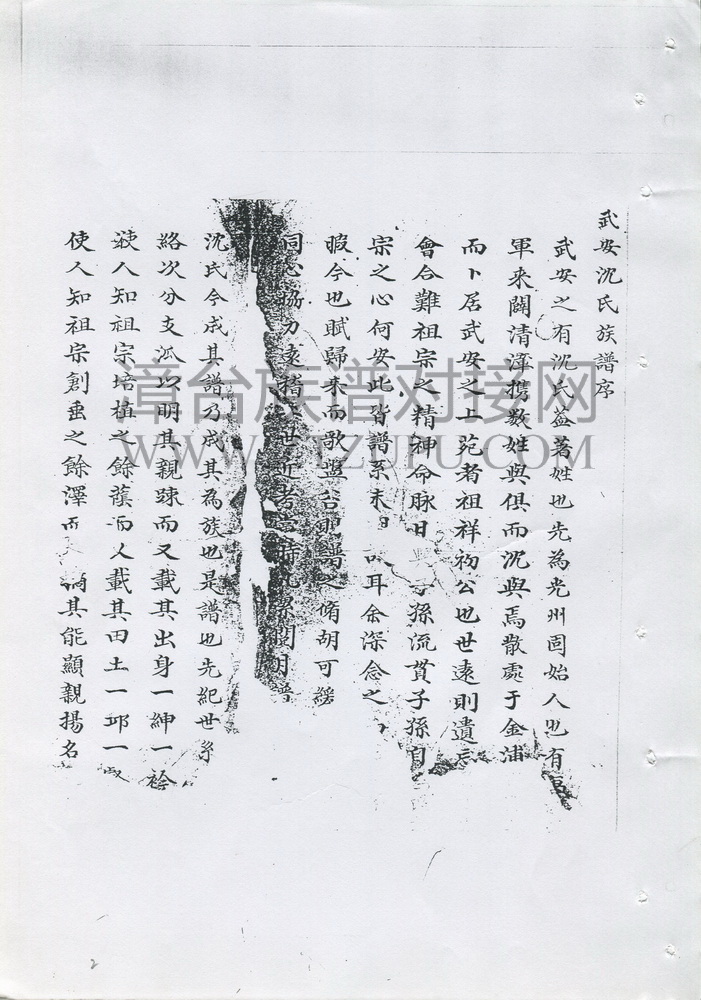 武安沈氏族譜序
武安之有沈氏蓋著姓也先為光州固始人也有
軍來闢清漳携数姓與俱而沉與焉散處于金浦
而卜居武安之上苑者祖祥初公也世遠則遺忘
會合難祖宗之精神命脉日子孫流貫子孫自
宗之心何安此皆譜系未耳余深念之
暇今也賦歸来而歌譜之脩胡可緩
同心協力遠稽世近考當時
沈氏今成其譜乃成其為族也是譜也先紀世系
絡次分支派以明其親疎而又載其出身一紳一衿
使人知祖宗培植之餘蔭而人載其田土一邱一
使人知祖宗創垂之餘澤而其能顯親揚名
漳台族谱对接网
WWW.ZTZUPU.COM
2